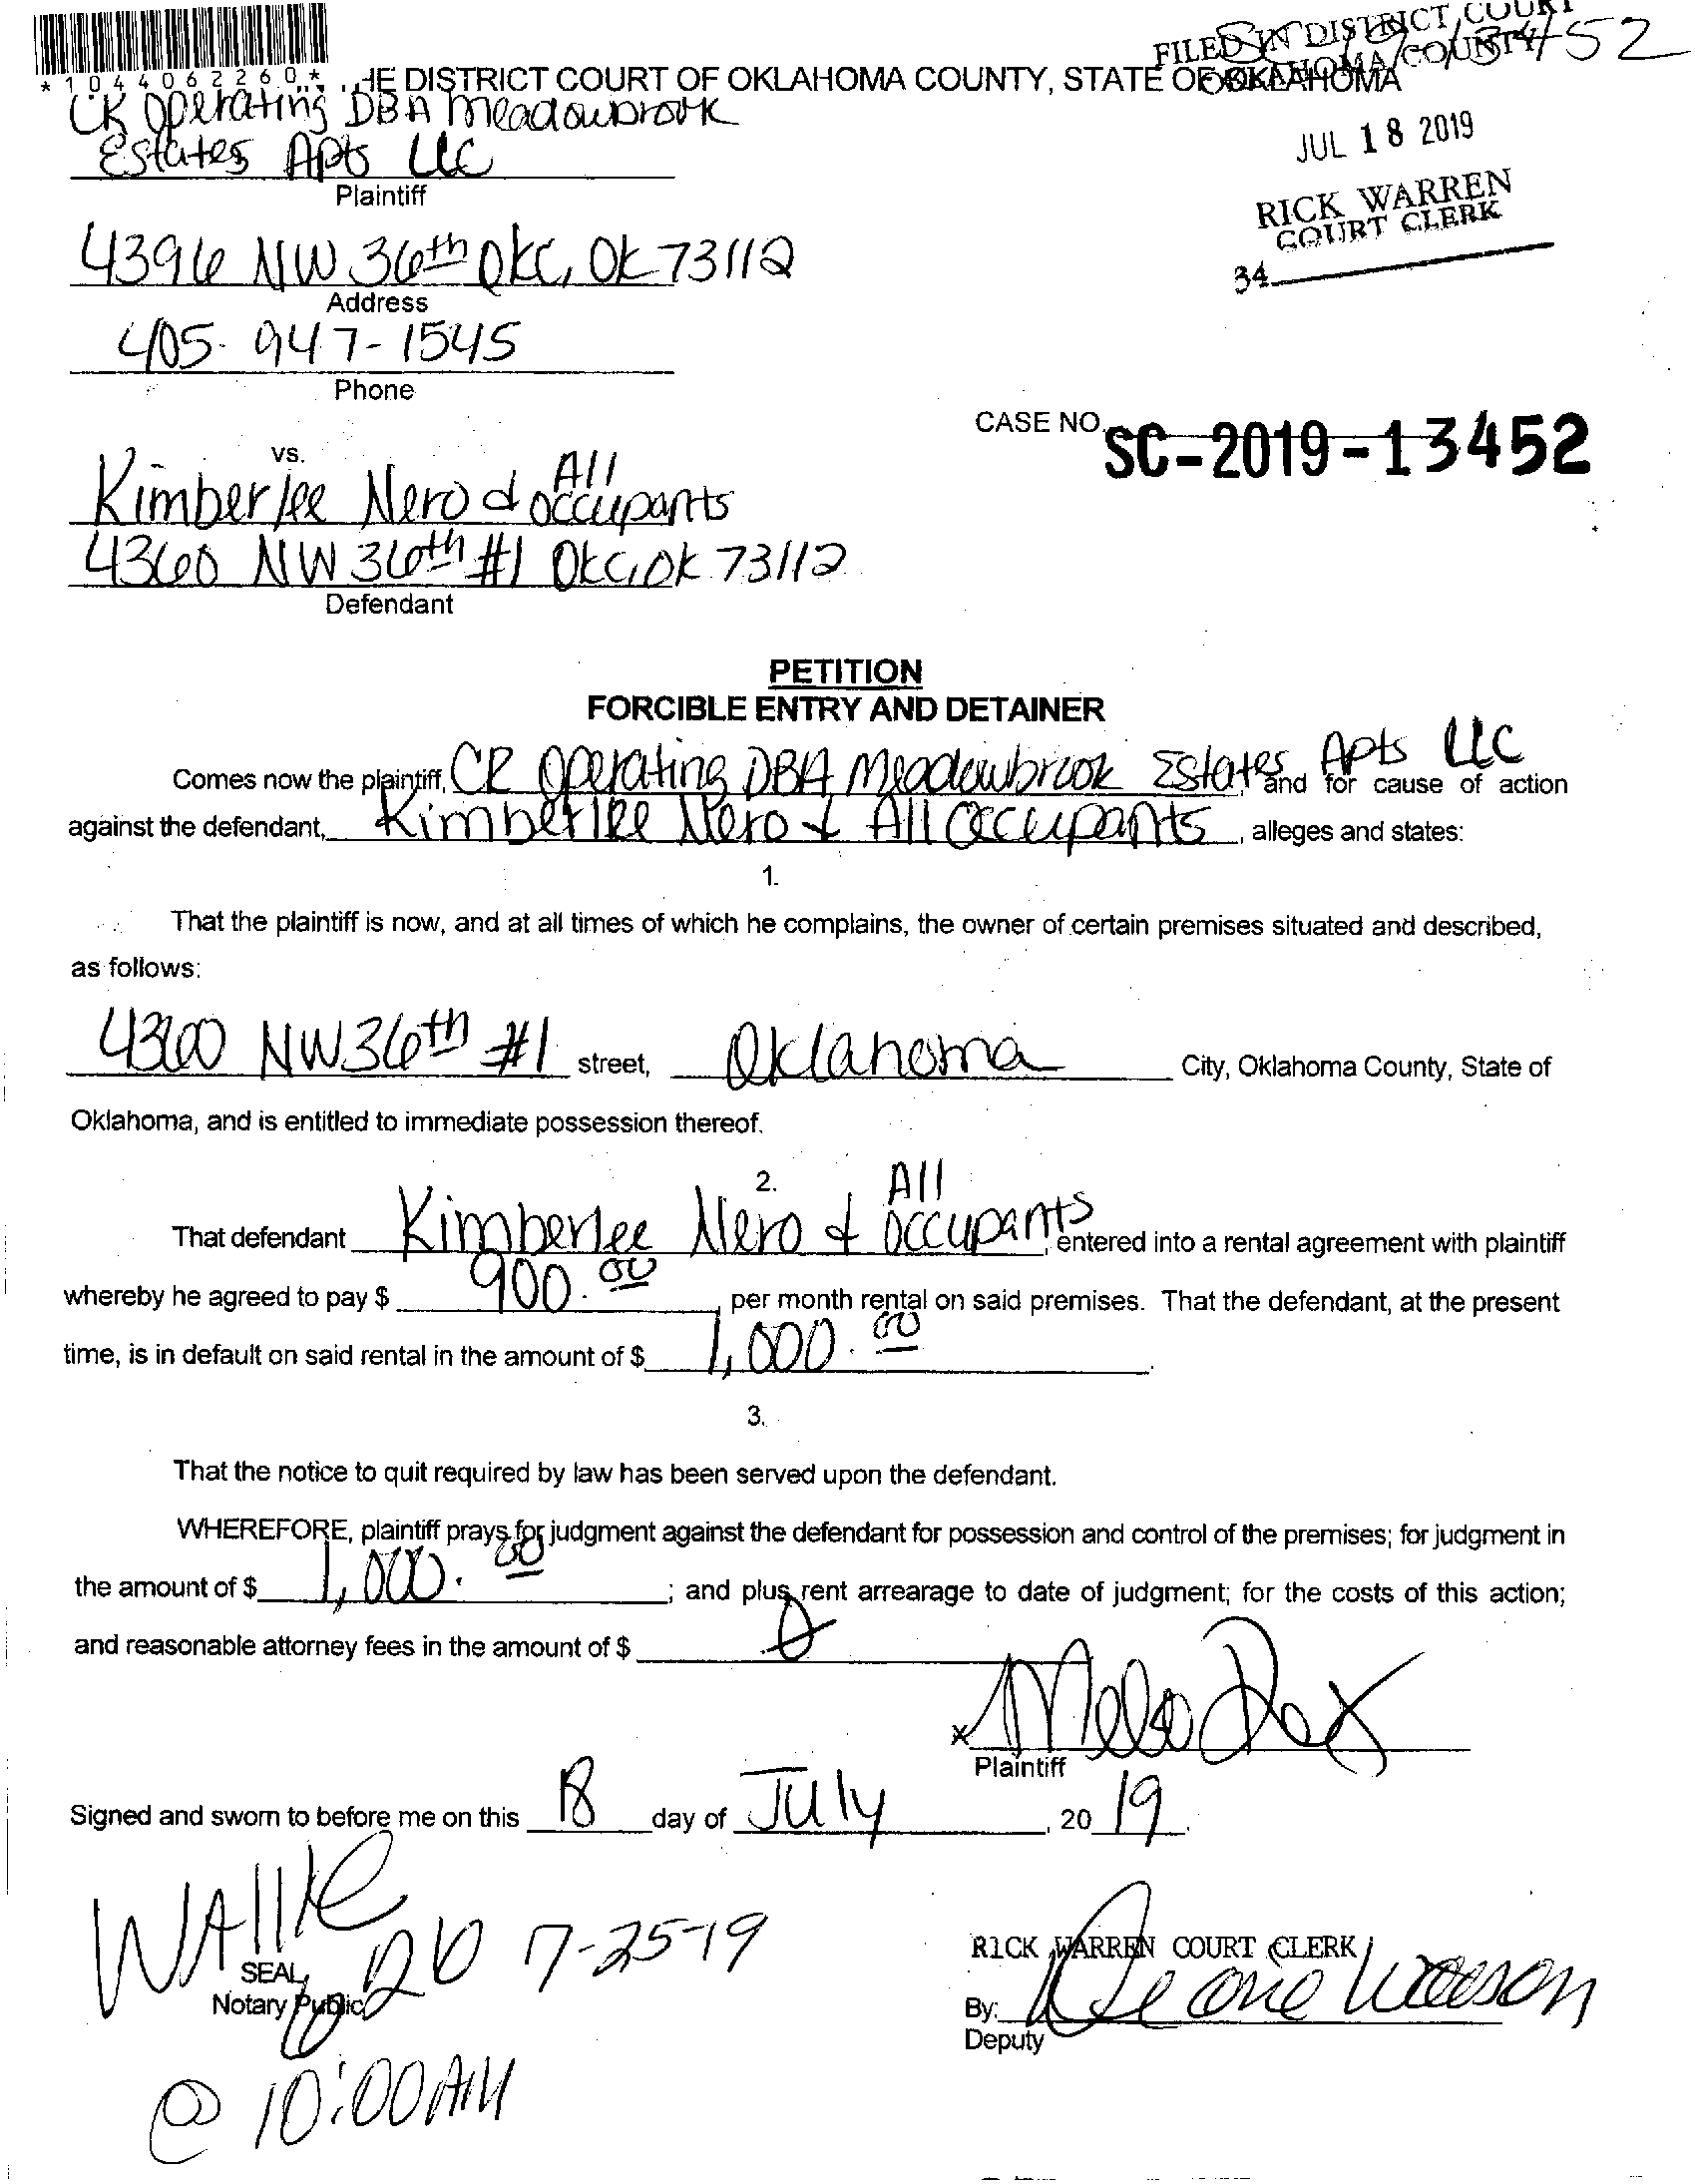 FILED IN DISTRICT COURT
OKLAHOMA COUNTY
SC-19-13452
*1044062260*
HE DISTRICT COURT OF OKLAHOMA COUNTY, STATE OF OKLAHOMA
JUL 18 2019
RICK WARREN
COURT CLERK
34
CR Operating DBA Meadowbrook
Estates Apts LLC
Plaintiff
4396 NW 36th OKC, OK 73112
Address
405-947-1545
Phone
CASE NO. SC-2019-13452
vs.
Kimberlee Nero & All occupants
4360 NW 36th #1 OKC, OK 73112
Defendant
PETITION
FORCIBLE ENTRY AND DETAINER
Comes now the plaintiff, CR Operating DBA Meadowbrook Estates Apts LLC, and for cause of action
against the defendant, Kimberlee Nero & All Occupants, alleges and states:
1.
That the plaintiff is now, and at all times of which he complains, the owner of certain premises situated and described,
as follows:
4360 NW 36th #1 street, Oklahoma City, Oklahoma County, State of
Oklahoma, and is entitled to immediate possession thereof.
2.
That defendant Kimberlee Nero & All occupants, entered into a rental agreement with plaintiff
whereby he agreed to pay $ 900.00, per month rental on said premises. That the defendant, at the present
time, is in default on said rental in the amount of $ 1,000.00.
3.
That the notice to quit required by law has been served upon the defendant.
WHEREFORE, plaintiff prays for judgment against the defendant for possession and control of the premises; for judgment in
the amount of $ 1,000.00; and plus rent arrearage to date of judgment; for the costs of this action;
and reasonable attorney fees in the amount of $ 0
x
Plaintiff
Signed and sworn to before me on this 18 day of July, 2019.
WAllKe
7-25-19
SEAL
Notary Public
RICK WARREN COURT CLERK
By:
Deputy
@ 10:00AM